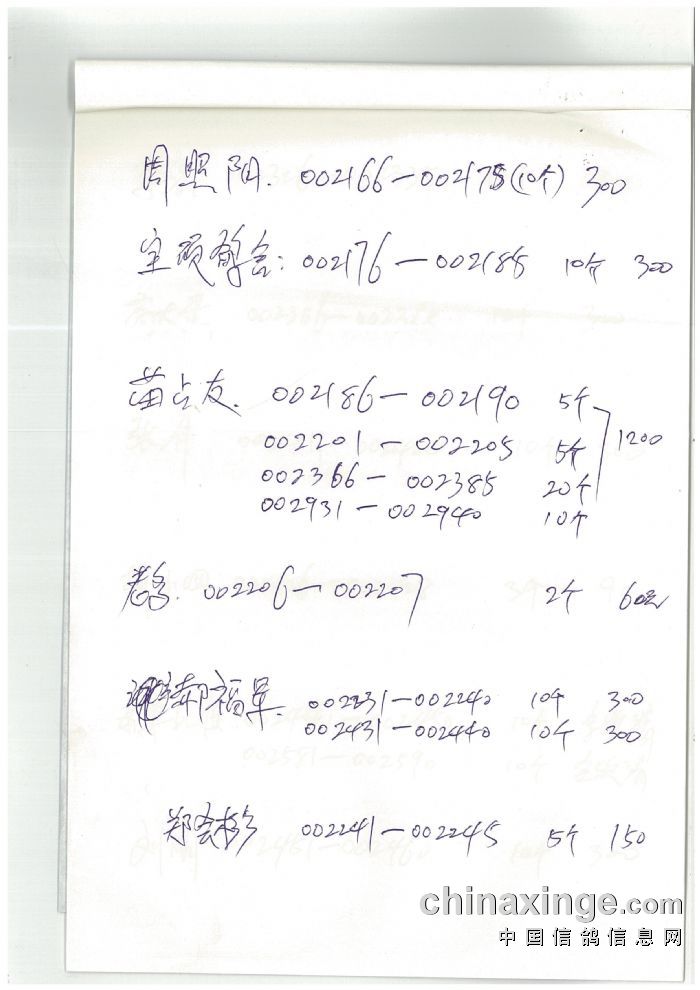 周照阳. 002166—002175(10个) 300
宝硕鸽舍: 002176—002185 10个 300
苗占友. 002186—002190 5个
002201—002205 5个 1200
002366—002385 20个
002931—002940 10个
002206—002207 2个 60元
郝福军. 002231—002240 10个 300
002431—002440 10个 300
郑会彬 002241—002245 5个 150
chinaxinge.com
中国信鸽信息网